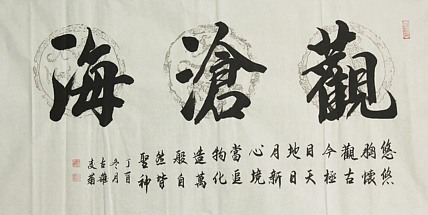 觀滄海
悠悠
胸懷
觀古
今極
目天
地日
月新
心境
當追
物化
造萬
般自
然皆
聖神
丁酉
冬月